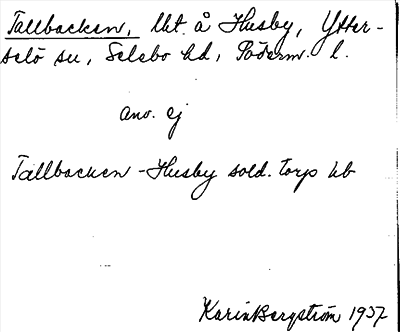 Tallbacken, lht å Husby, Ytter-
selö sn, Selebo hd, Söderm. l.
anv. ej
Tallbacken - Husby sold. torp hb
Karin Bergström 1937